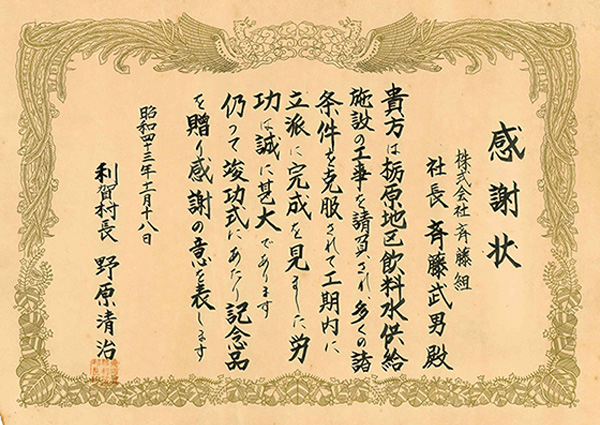 感謝状
株式会社斉藤組
社長 斉藤武男殿
貴方は栃原地区飲料水供給
施設の工事を請負され多くの諸
条件を克服されて工期内に
立派に完成を見ました労
功は誠に甚大であります
仍つて竣功式にあたり記念品
を贈り感謝の意を表します
昭和四十三年十一月十八日
利賀村長 野原清治